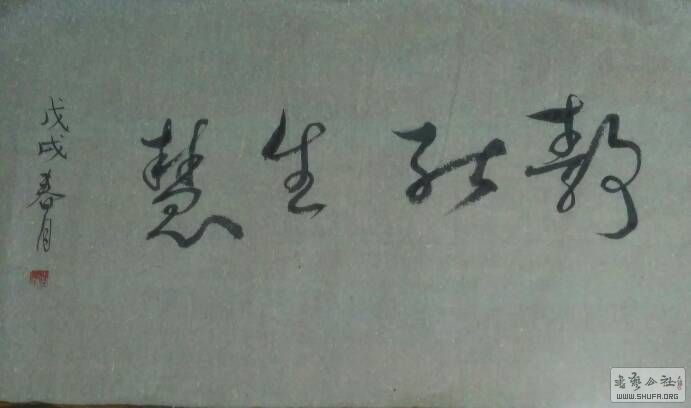 静能生慧
戊戌春月
書藝公社
WWW.SHUFA.ORG